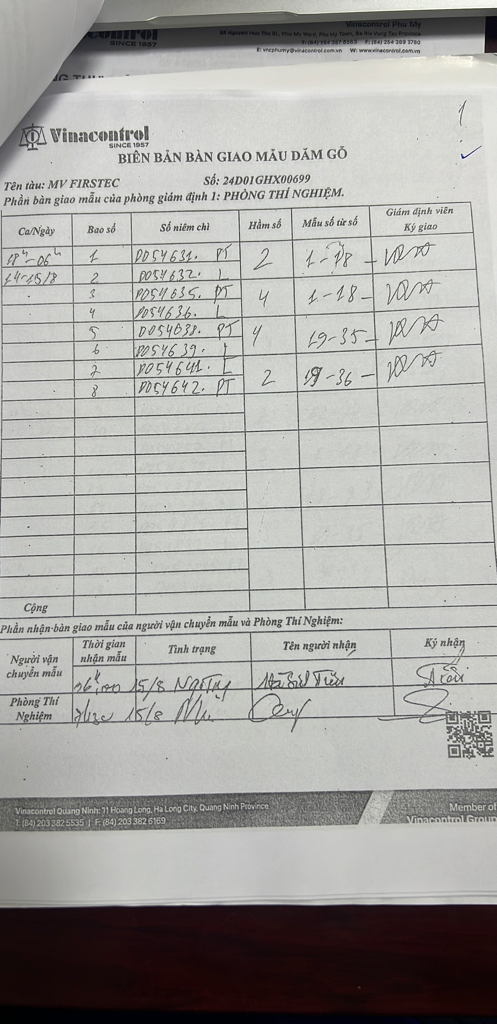 Vinacontrol Phu My
SINCE 1957
E: vncphumy@vinacontrol.com.vn W: www.vinacontrol.com.vn
1
Vinacontrol
SINCE 1957
BIÊN BẢN BÀN GIAO MẪU DĂM GỖ
Tên tàu: MV FIRSTEC Số: 24D01GHX00699
Phần bàn giao mẫu của phòng giám định 1: PHÒNG THÍ NGHIỆM.
Ca/Ngày Bao số Số niêm chì Hầm số Mẫu số từ số Giám định viên Ký giao
18h-06h 1 D054631. PT 2 1-18
14-15/8 2 D054632. L
3 D054635. PT 4 1-18
4 D054636. L
5 D054638. PT 4 19-35
6 D054639. L
7 D054641. L 2 19-36
8 D054642. PT
Cộng
Phần nhận-bàn giao mẫu của người vận chuyển mẫu và Phòng Thí Nghiệm:
Người vận chuyển mẫu Thời gian nhận mẫu Tình trạng Tên người nhận Ký nhận
06h00 15/8
Phòng Thí Nghiệm 15/8
Vinacontrol Quang Ninh: 11 Hoang Long, Ha Long City, Quang Ninh Province
T: (84) 203 382 5535 | F: (84) 203 382 6169
Member of
Vinacontrol Group